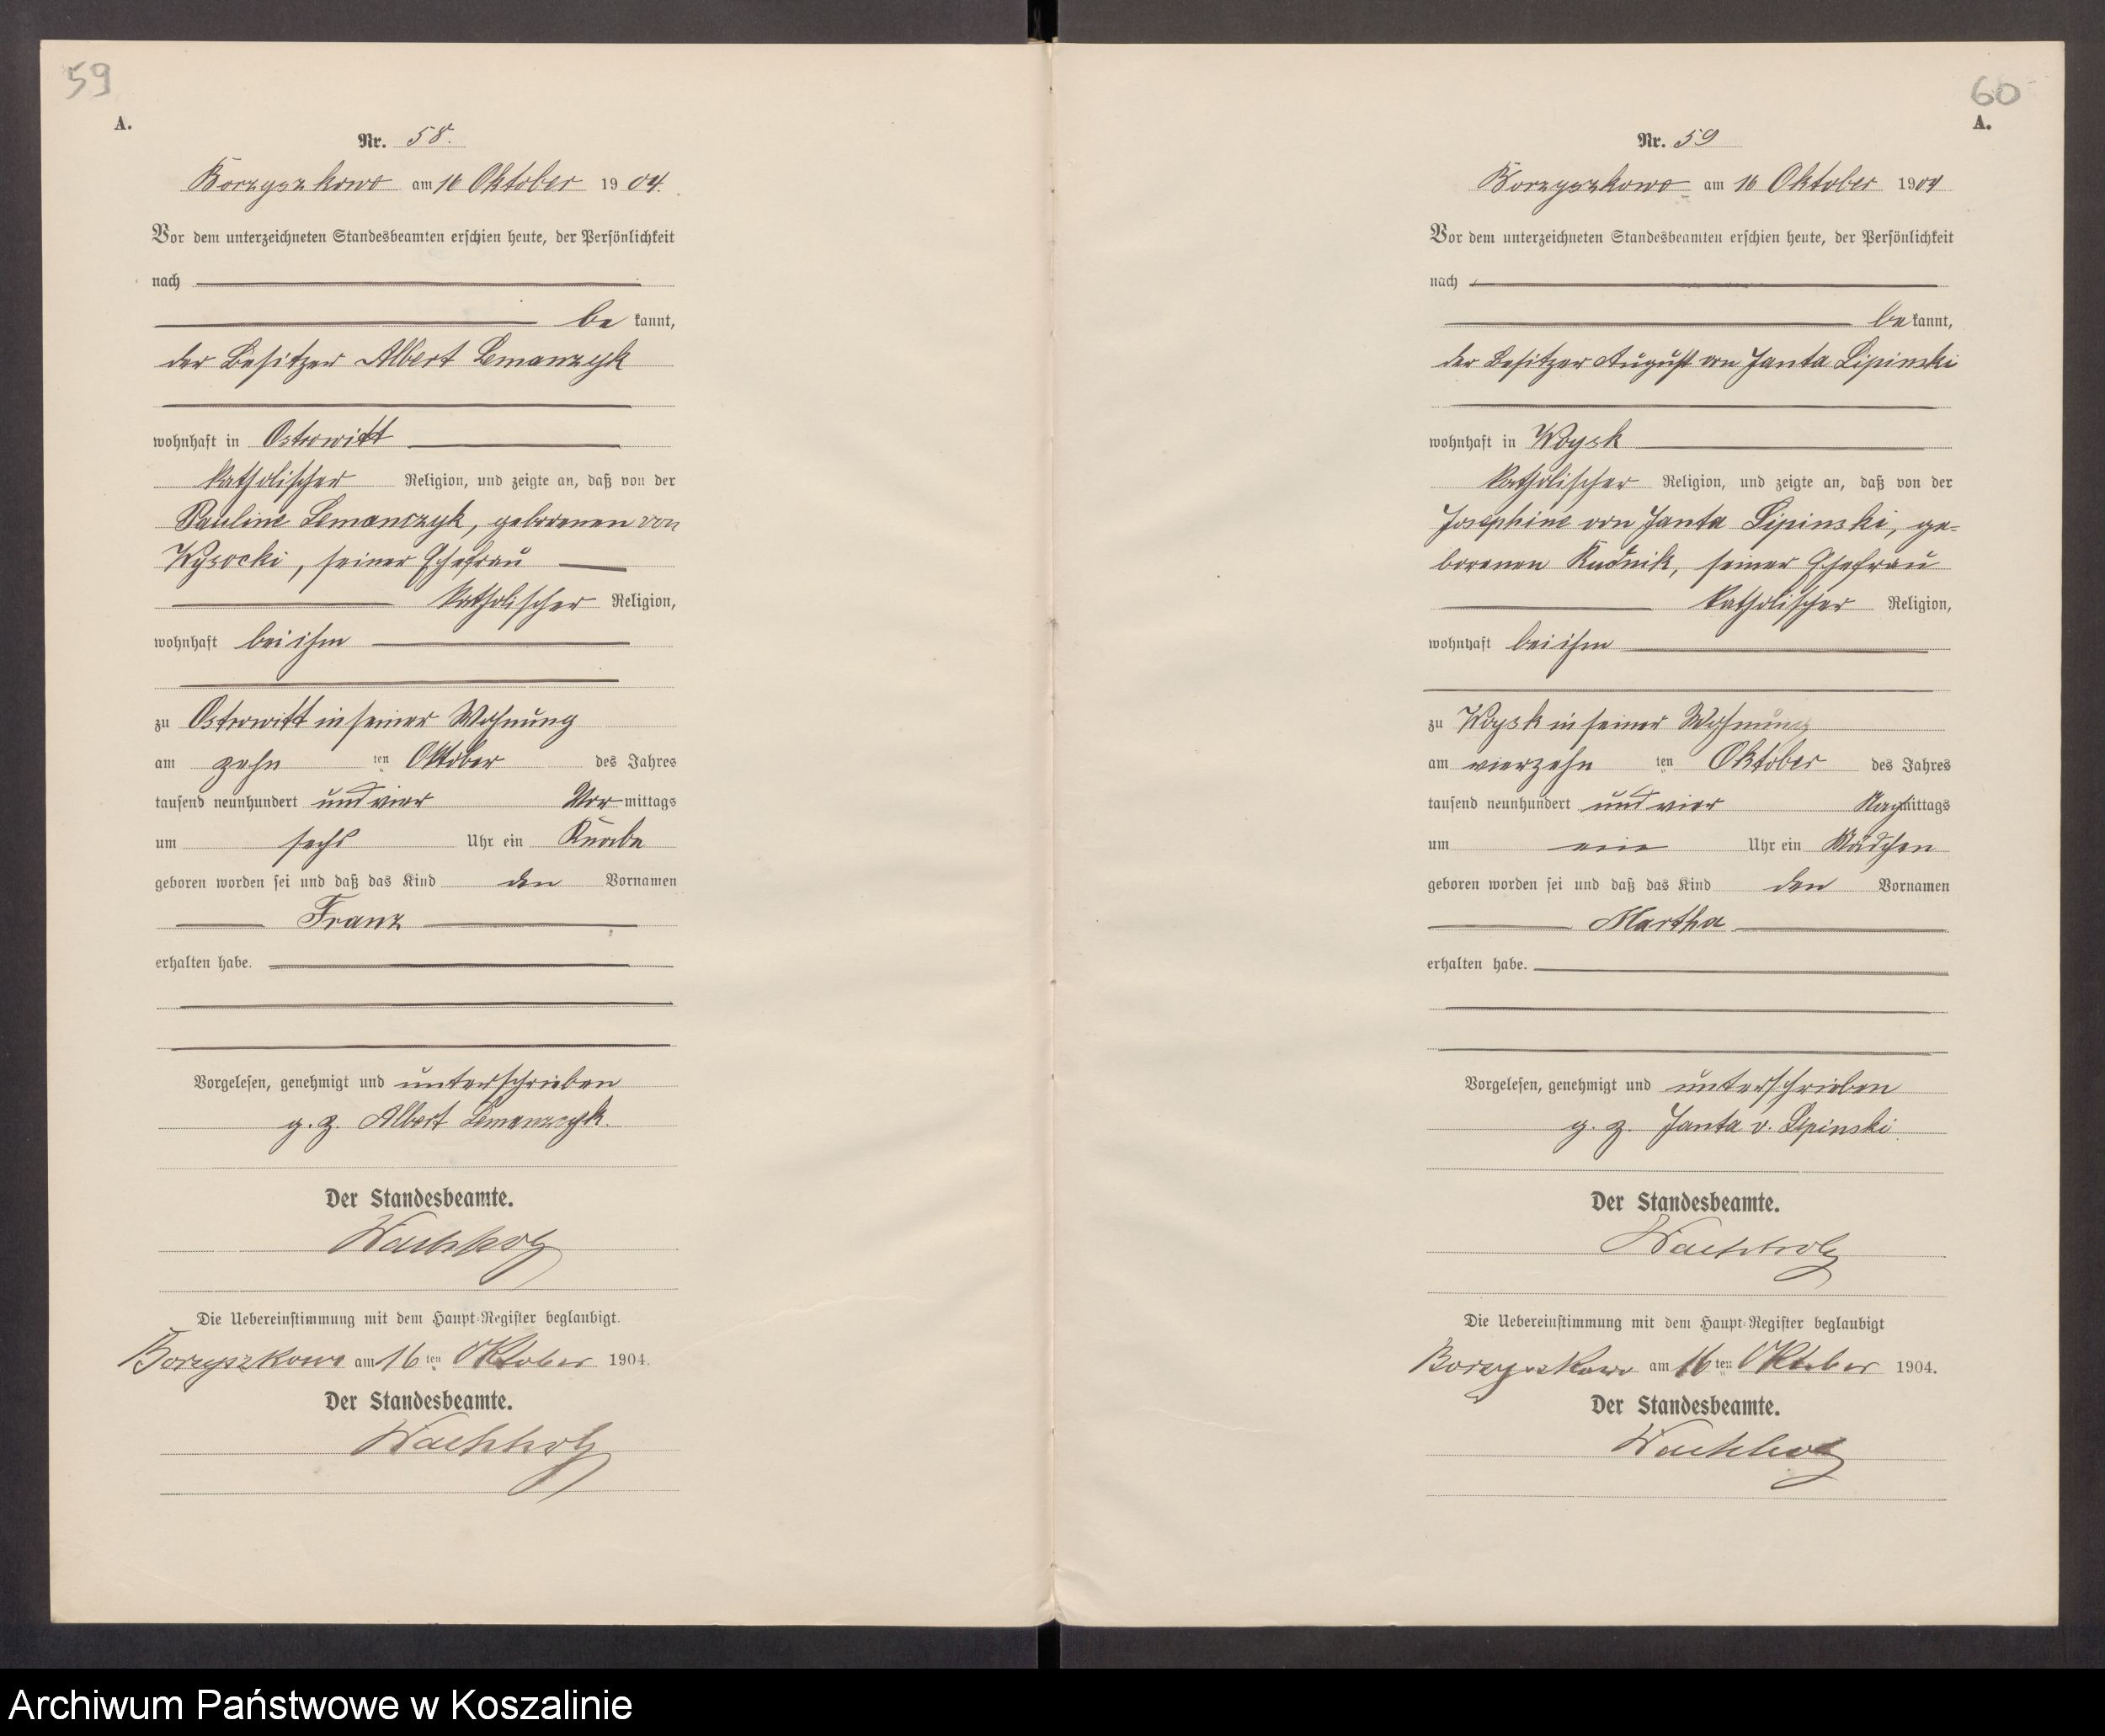 59
A.
Nr. 58.
Borzyszkowo am 16 Oktober 1904.
Vor dem unterzeichneten Standesbeamten erschien heute, der Persönlichkeit
nach
be kannt,
der Besitzer Albert Lemanzyk
wohnhaft in Ostrowitt
katholischer Religion, und zeigte an, daß von der
Pauline Lemanczyk, geborenen von
Wysocki, seiner Ehefrau
katholischer Religion,
wohnhaft bei ihm
zu Ostrowitt in seiner Wohnung
am zehn ten Oktober des Jahres
tausend neunhundert und vier Vor mittags
um sechs Uhr ein Knabe
geboren worden sei und daß das Kind den Vornamen
Franz
erhalten habe.
Vorgelesen, genehmigt und unterschrieben
g. z. Albert Lemanczyk.
Der Standesbeamte.
Wachholz
Die Uebereinstimmung mit dem Haupt-Register beglaubigt.
Borzyszkowo am 16 ten Oktober 1904.
Der Standesbeamte.
Wachholz
60
A.
Nr. 59
Borzyszkowo am 16 Oktober 1904
Vor dem unterzeichneten Standesbeamten erschien heute, der Persönlichkeit
nach
be kannt,
der Besitzer August von Janta Lipinski
wohnhaft in Woysk
katholischer Religion, und zeigte an, daß von der
Josephine von Janta Lipinski, ge-
borenen Rudnik, seiner Ehefrau
katholischer Religion,
wohnhaft bei ihm
zu Woysk in seiner Wohnung
am vierzehn ten Oktober des Jahres
tausend neunhundert und vier Nachmittags
um ein Uhr ein Mädchen
geboren worden sei und daß das Kind den Vornamen
Martha
erhalten habe.
Vorgelesen, genehmigt und unterschrieben
g. z. Janta v. Lipinski
Der Standesbeamte.
Wachholz
Die Uebereinstimmung mit dem Haupt-Register beglaubigt
Borzyszkowo am 16 ten Oktober 1904.
Der Standesbeamte.
Wachholz
Archiwum Państwowe w Koszalinie